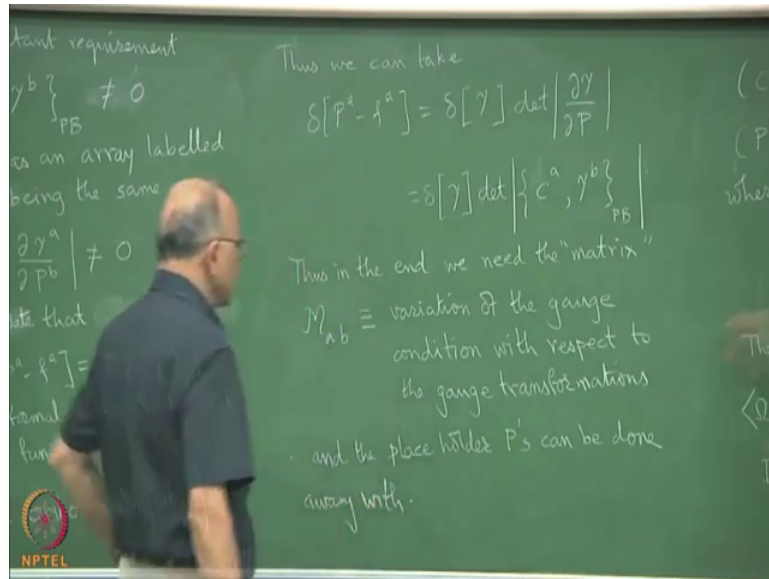 tant requirement
y^b }_{PB} ≠ 0
as an array labelled
being the same
∂γ^a / ∂P^b | ≠ 0
ate that
- f^a] =
formal
fun
Thus we can take
δ[P^a - f^a] = δ[γ] det |∂γ/∂P|
= δ[γ] det |{c^a, γ^b}_{PB}|
Thus in the end we need the "matrix"
M_{ab} ≡ variation of the gauge
condition with respect to
the gauge transformations
and the place holder P's can be done
away with.
(C
(P
wher
The
⟨Ω
NPTEL